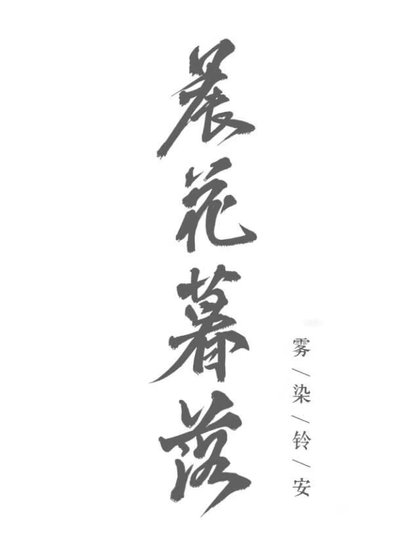 晨花暮落
雾/染/铃/安